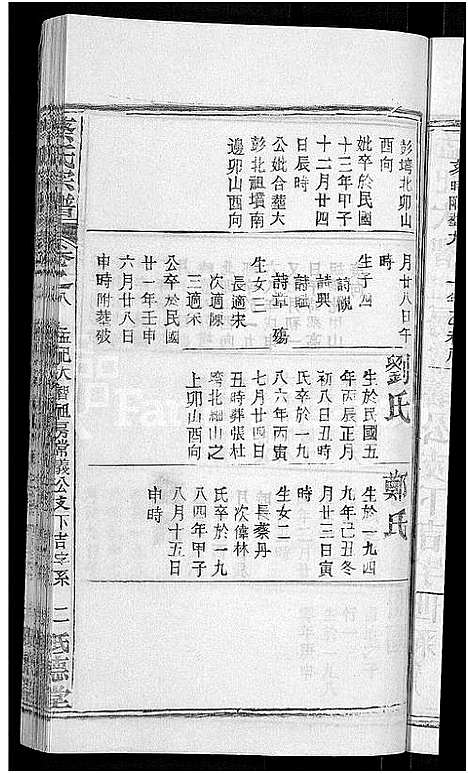 彭塆北卯山
酉向
妣卒於民國
十三年甲子
十二月廿四
日辰時
公妣合塟大
彭北祖墳南
邊卯山酉向
月廿八日午
時
生子四
詩觀
詩興
詩賦
詩章 殤
生女三
長適宋
次適陳
三適宋
公卒於民國
廿一年壬申
六月廿八日
申時附塟破
劉氏
生於民國五
年丙辰正月
初八日丑時
氏卒於一九
八六年丙寅
七月廿四日
丑時葬張杜
塆北細山之
上卯山酉向
鄭氏
生於一九四
九年己丑冬
月廿三日寅
時
生女二
長蔡丹
次蔡林
氏卒於一九
八四年甲子
八月十五日
申時
蔡氏宗譜 卷之八 孟妃大智祖房常義公支下吉字系 二 德堂